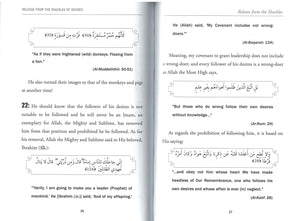 RELEASE FROM THE SHACKLES OF DESIRES
كَأَنَّهُمْ حُمُرٌ مُسْتَنْفِرَةٌ فَرَّتْ مِنْ قَسْوَرَةٍ
"As if they were frightened (wild) donkeys. Fleeing from
a lion."
(Al-Muddaththir: 50-51)
He also turned their images to that of the monkeys and pigs
at another time!
22: He should know that the follower of his desires is not
suitable to be followed and he will never be an Imam, an
exemplary for Allah, the Mighty and Sublime, has removed
him from that position and prohibited he be followed. As
for his removal, Allah the Mighty and Sublime said to His beloved,
Ibrahim
إِنِّي جَاعِلُكَ لِلنَّاسِ إِمَامًا قَالَ وَمِنْ ذُرِّيَّتِي قَالَ لَا يَنَالُ
"Verily, I am going to make you a leader (Prophet) of
mankind.' He (Ibrahim) said, 'And of my offspring.'
26
Release from the Shackles
He (Allah) said, 'My Covenant includes not wrong-
doers.'"
(Al-Baqarah: 124)
Meaning, my covenant to grace leadership does not include
a wrong-doer; and every follower of his desires is a wrong-
er Allah the Most High says,
بَلِ اتَّبَعَ الَّذِينَ ظَلَمُوا أَهْوَاءَهُمْ بِغَيْرِ عِلْمٍ
"But those who do wrong follow their own desires
without knowledge..."
(Ar-Rum: 29)
As regards the prohibition of following him, it is based on
His saying,
"...and obey not him whose heart We have made
heedless of Our Remembrance, one who follows his
own desires and whose affair is ever (in) neglect."
(Al-Kahf: 28)
27